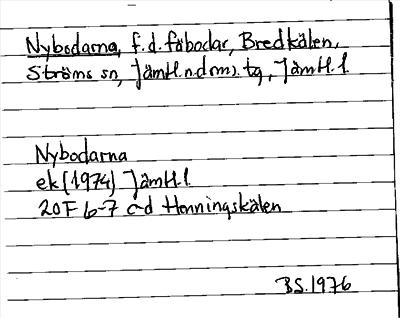 Nybodarna, f.d. fäbodar, Bredkälen,
Ströms sn, Jämtl.n.doms.tg, Jämtl.l.
Nybodarna
ek (1974) Jämtl.l.
20F 6-7 c-d Henningskälen
BS.1976